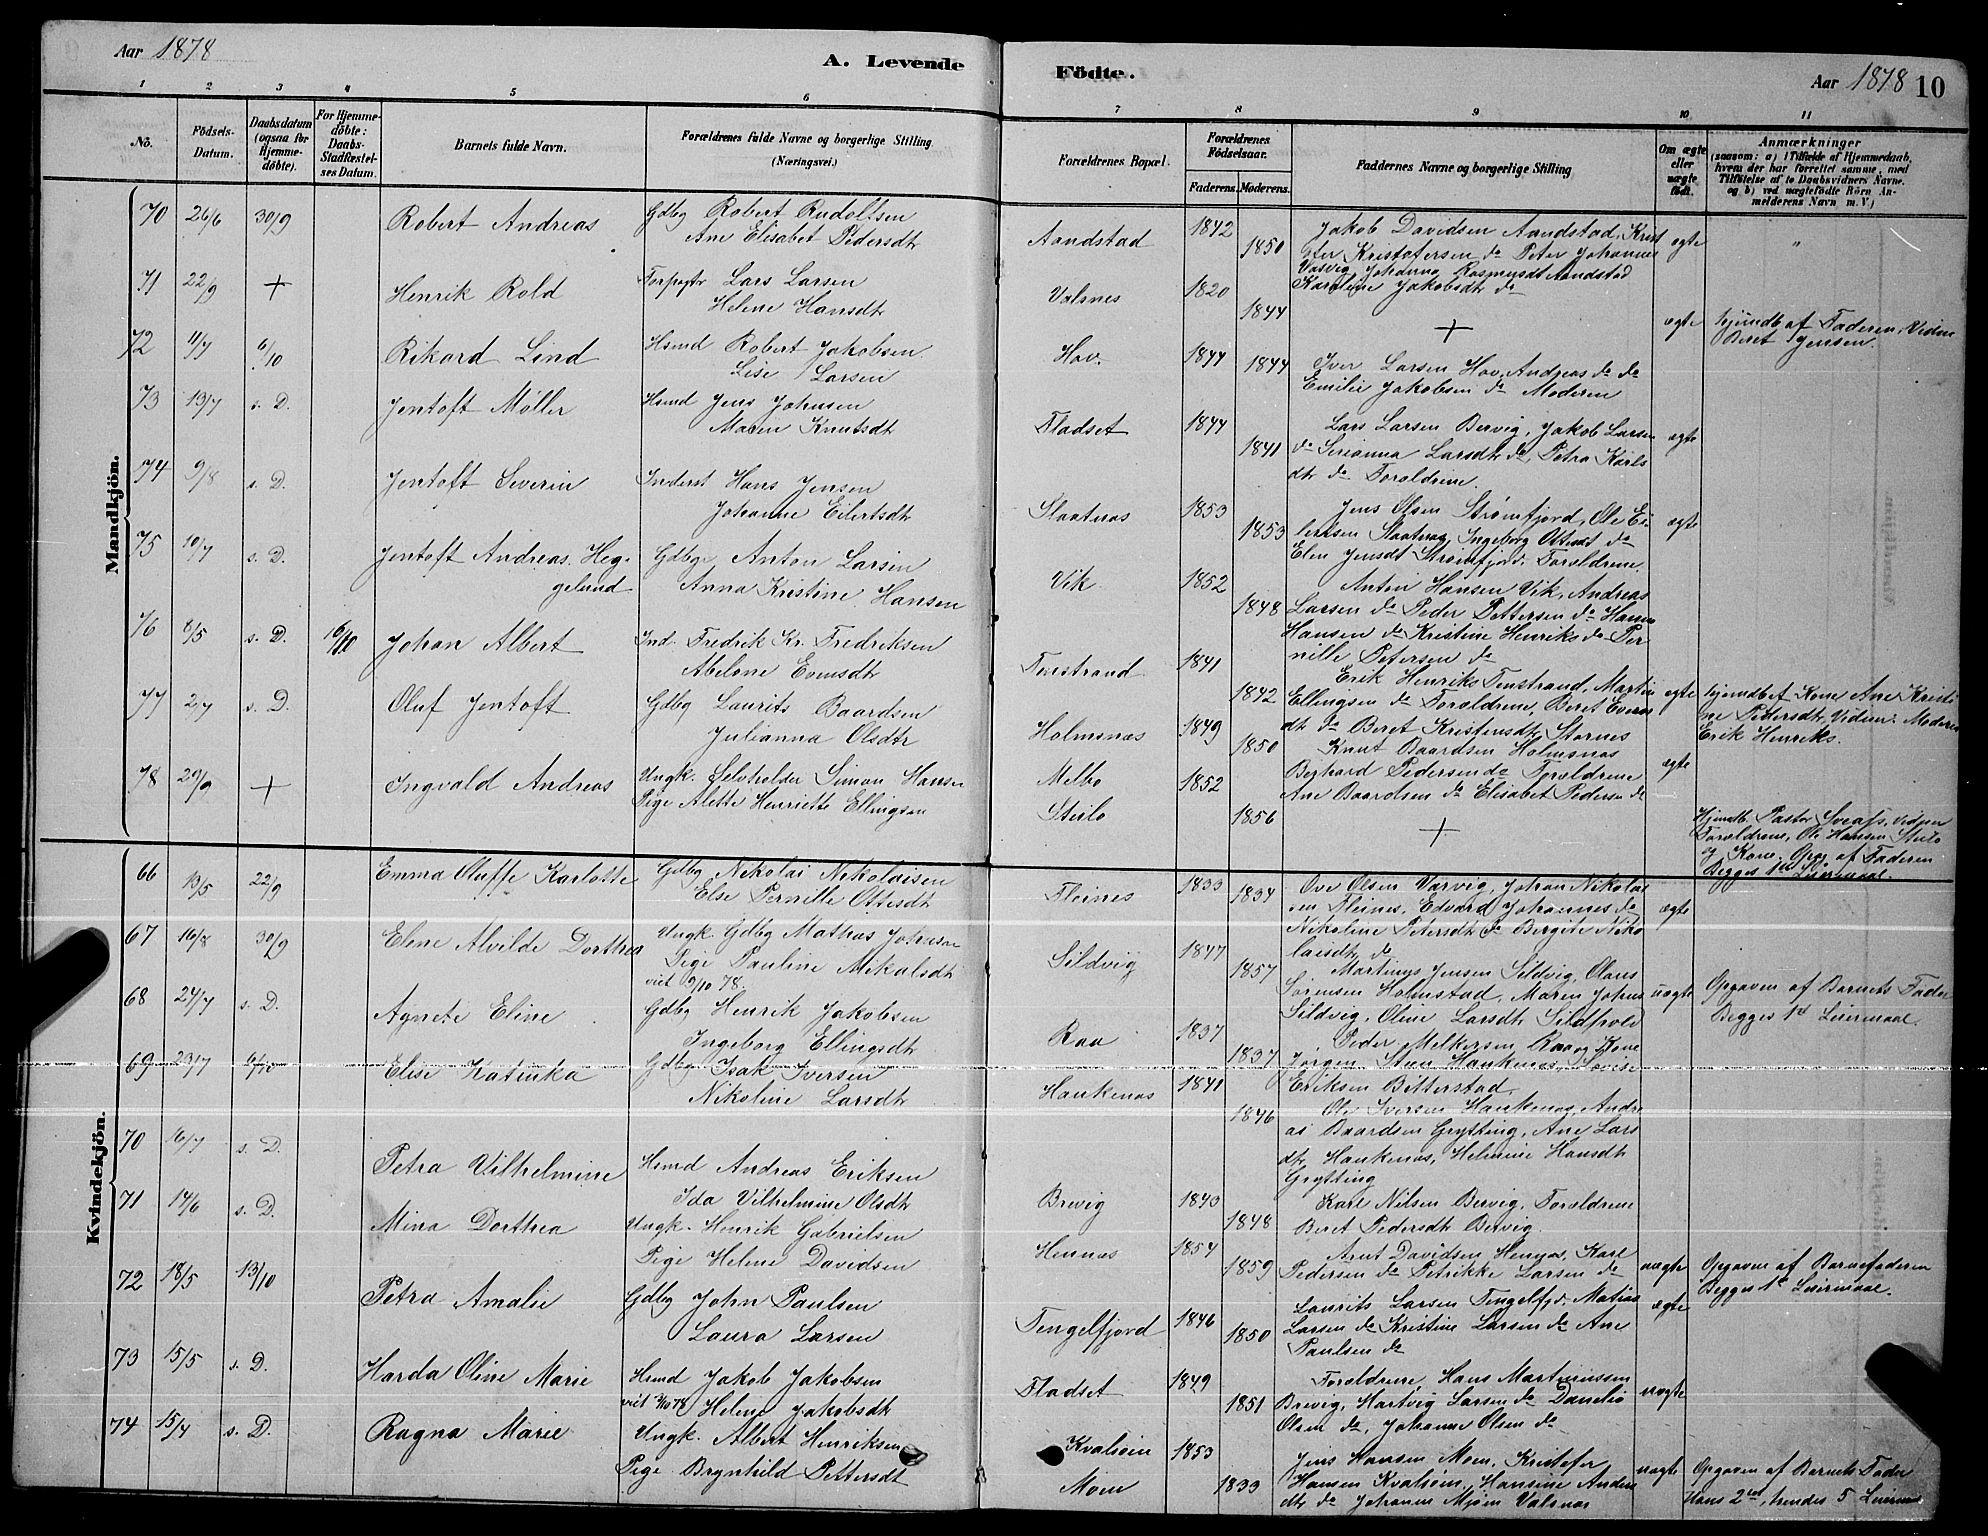 Aar 1878
A. Levende
Födte.
Aar 1878 10
1 2 3 4 5 6 7 8 9 10 11
No.
Födsels-Datum.
Daabsdatum (ogsaa for Hjemmedöbte).
For Hjemmedöbte: Daabs-Stadfæstelses Datum.
Barnets fulde Navn.
Forældrenes fulde Navne og borgerlige Stilling (Næringsvei.)
Forældrenes Bopæl.
Forældrenes Födselsaar.
Faderens. Moderens.
Faddernes Navne og borgerlige Stilling
Om ægte eller uægte födt.
Anmærkninger
(saasom: a) i Tilfælde af Hjemmedaab, hvem der har forrettet samme, med Tilföielse af to Daabsvidners Navne, og b) ved uægtefödte Börn Anmelderens Navn m. V.)
Mandkjön.
70 26/6 30/9 Robert Andreas Gdbg Robert Rudolfsen
Ane Elisabet Pedersdtr
Aandstad 1842 1850
Jakob Davidsen Aandstad, Krist
ofer Kristofersen do Peter Johannes
Vasvig, Johanna Rasmusdt Aandstad
Karoline Jakobsdtr do
ægte "
71 22/9 + Henrik Rold Forpagtr Lars Larsen
Helene Hansdtr
Valsnes 1820 1844 +
ægte hjemdb af Faderen, Vidne
Beret Jensen.
72 11/7 6/10 Rikard Lind Hsmd Robert Jakobsen
Lise Larsen
Hov 1844 1844
Iver Larsen Hov, Andreas do do
Emilie Jakobsen do Moderen
73 13/7 s. D. Jentoft Møller Hsmd Jens Johnsen
Maren Knutsdtr
Fladset 1844 1841
Lars Larsen Bervig, Jakob Larsen
do Serianna Larsdtr do, Petra Karls
dtr do Forældrene.
ægte
74 9/8 s. D. Jentoft Severin Inderst Hans Jensen
Johanne Eilertsdtr
Slaatnæs 1853 1853
Jens Olsen Strømfjord, Ole Ei
lertsen Slaatnæs, Ingeborg Ottesdt do
Elen Jensdt Strømfjord. Forældrene.
ægte
75 10/7 s. D. Jentoft Andreas Heg-
gelund
Gdbge Anton Larsen
Anna Kristine Hansen
Vik 1852 1848
Anton Hansen Vik, Andreas
Larsen do Peder Pettersen do Hans
Hansen do Kristine Henriks do Per
nille Petersen do
76 8/5 s. D. 16/10 Johan Albert Ind. Fredrik Kr. Fredriksen
Abelone Evensdtr
Tenstrand 1841 1842
Erik Henriks Tenstrand, Martin
Ellingsen do Forældrene, Beret Evens
dtr do Beret Kristensdtr Stornes
ægte hjemdb af Kone Ane Kristi
ne Pedersdtr, Vidner Moderen
Erik Henriks.
77 2/7 s. D. Oluf Jentoft Gdbg Laurits Baardsen
Julianna Olsdtr
Holmsnæs 1849 1850
Knut Baardsen Holmsnæs
Beghard Pedersen do Forældrene
Ane Baardsen do Elisabet Pedersen do
ægte
78 29/9 + Ingvald Andreas Ungk. Selvholder Simon Hansen
Pige Alette Henriette Ellingsen
Melbo 1852
Steilo 1856 +
Hjemdb. Pastor Svaass, vidner
Forældrene, Ole Hansen Steilo
og Kone. Opg. af Faderen
Begges 1ste Leiermaal.
Kvindekjön.
66 13/5 22/9 Emma Oluffe Karlotte Gdbg Nikolai Nikolaisen
Else Pernille Ottesdt
Fleines 1833 1834
Ove Olsen Varvig, Johan Nikolai
sen Fleines, Edvard Johannes do
Nikoline Petersdtr do Bergite Niko
laisdtr do
ægte
67 16/8 30/9 Elene Alvilde Dorthea Ungk. Gdbg Mathias Johnsen
Pige Pauline Mikalsdtr
viet 9/10 78.
Sildvig 1847 1857
Martinus Jensen Sildvig, Olaus
Sørensen Holmstad, Maren Johns
Sildvig, Oline Larsdtr Sildpold
uægte Opgaven af Barnets Fader
Begges 1ste Leiermaal.
68 24/7 s. D. Agnete Eline Gdbg Henrik Jakobsen
Ingeborg Ellingsdtr
Raa 1837 1837
Peder Melkersen Raa og Kone
Jørgen Steen Haukenæs, Lovise
Eriksen Bitterstad
69 23/7 6/10 Elise Katinka Gdbg Isak Iversen
Nikoline Larsdtr
Haukenæs 1841 1846
Ole Iversen Haukenæs, Andre
as Baardsen Grytting, Ane Lars
dtr Haukenæs, Helmine Hansdtr
Grytting
70 16/7 s. D. Petra Vilhelmine Hsmd Andreas Eriksen
Ida Vilhelmine Olsdtr
Brevig 1843 1848
Karl Nilsen Bervig, Forældrene
Beret Pedersdtr Bervig.
71 14/6 s. D. Mina Dorthea Ungk. Henrik Gabrielsen
Pige Helene Davidsen
Hennæs 1854 1859
Arnt Davidsen Hennæs, Karl
Pedersen do Petrikke Larsen do
uægte Opgaven af Barnefaderen
Begges 1ste Leiermaal.
72 18/5 13/10 Petra Amalie Gdbg John Paulsen
Laura Larsen
Tengelfjord 1846 1850
Laurits Larsen Tengelfjd, Matias
Larsen do Kristine Larsen do Ane
Paulsen do
ægte
73 15/5 s. D. Harda Oline Marie Hsmd Jakob Jakobsen
Helene Jakobsdtr
Fladset 1849 1851
Forældrene, Hans Martinussen
Brevig, Hartvig Larsen do Danelio
Olsen do, Johanna Olsen do
uægte
74 15/4 s. D. Ragna Marie Ungk. Albert Henriksen
Pige Brynhild Pettersdt
Kvalsøen 1853
Moen 1833
Jens Hansen Moen, Kristofer
Hansen Kvalsøen, Hansine Anders
dtr do Johanna Mjøen Valsnæs
uægte Opgaven af Barnets Fader
Hans 2det, hendes 5 Leiermaal